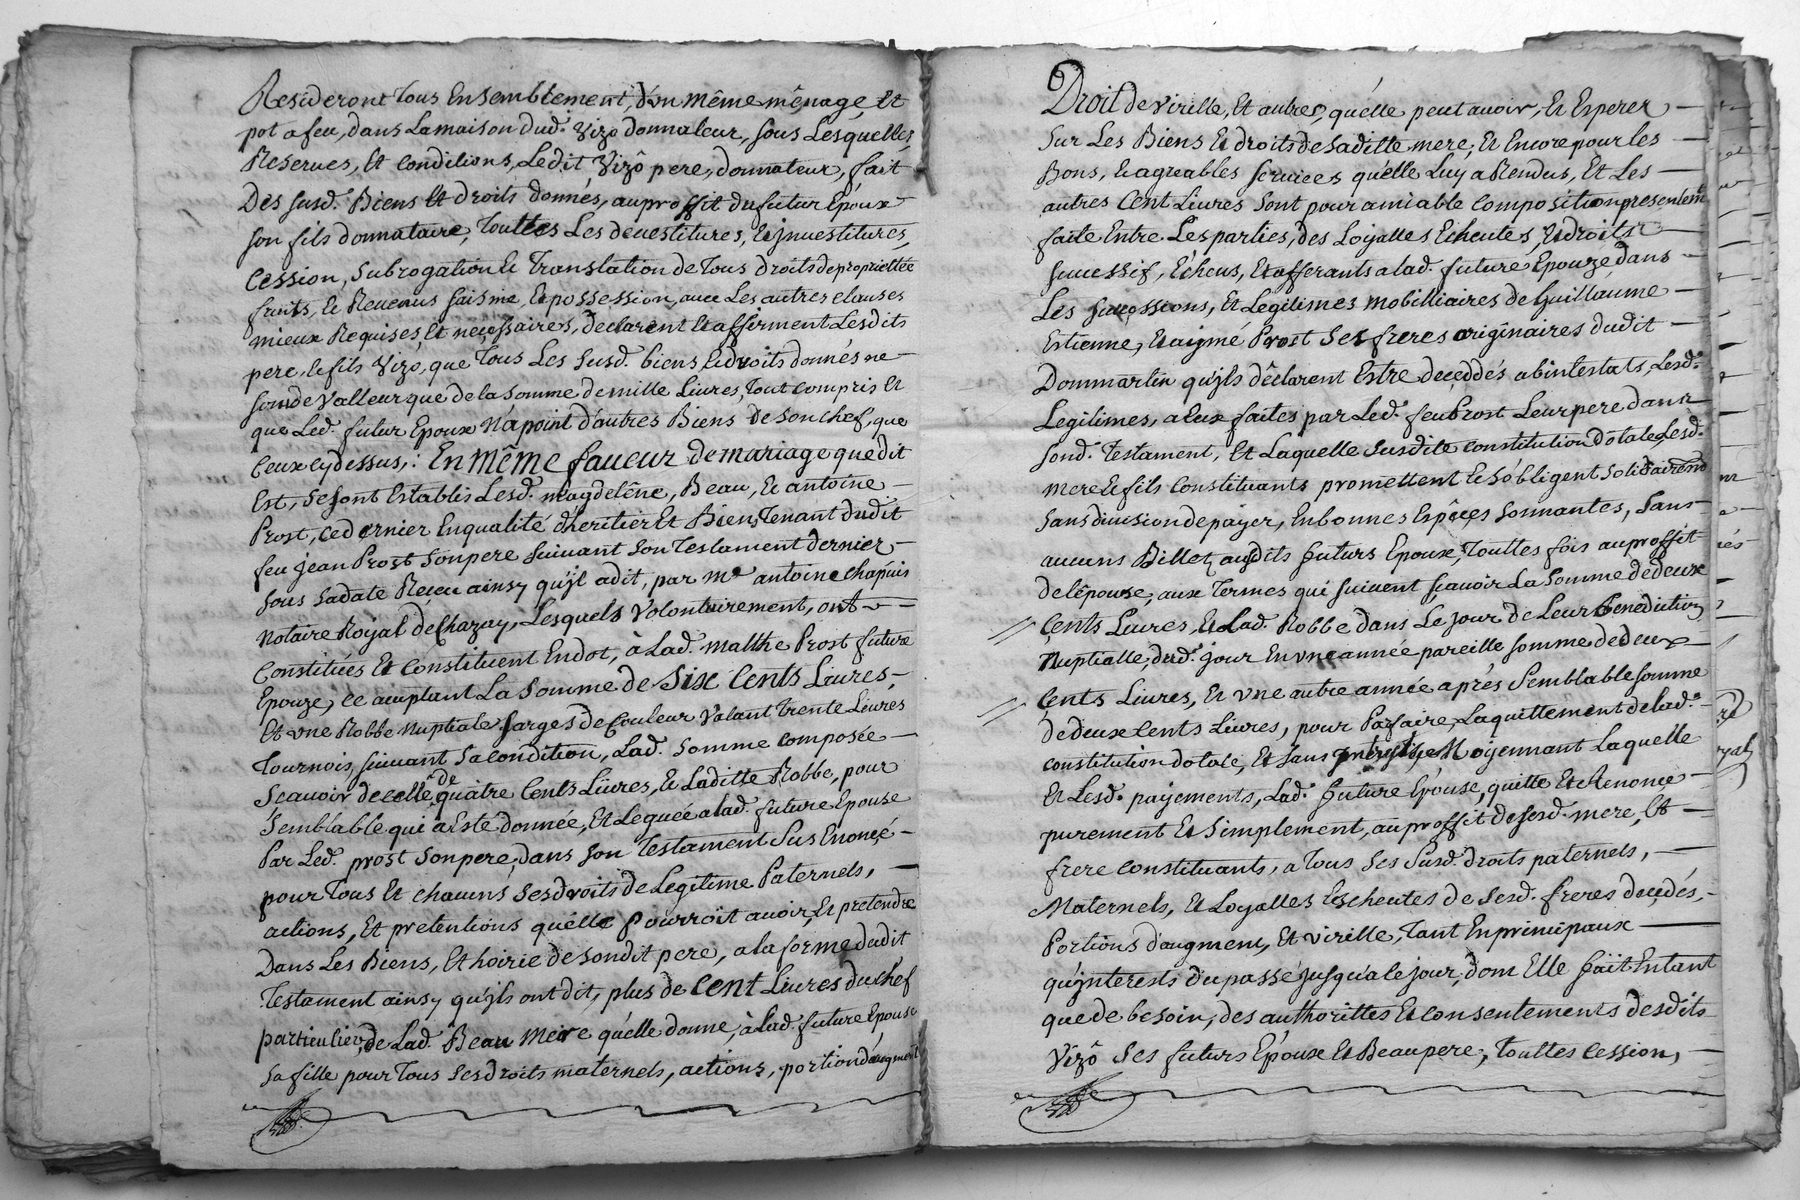 Resideront tous Ensemblement, d'un même mênage et
pot a feu, dans Lamaison dud. Vizo donnateur, sous Lesquelles
Reserves, Et conditions, Ledit Vizô pere, donnateur, fait
Des susd. Biens Et droits donnés, auproffit du futur Epoux
son fils donnataire, Touttes Les devestitures, Et jnvestitures,
Cession, Subrogation Et Translation de Tous droits de propriettée
fruits, Et Revenus saisine, Et possession, avec Les autres clauses
mieux Requises, Et necessaires, declarent Et affirment Lesdits
pere, Et fils Vizo, que Tous Les susd. biens Et droits donnés ne
sont de Valleur que de la Somme de mille Livres, Tout compris Et
que Led. futur Epoux N'a point d'autres Biens de son chef, que
Ceux cy dessus,: En même faveur de mariage que dit
Est, se sont Establis Lesd. magdelêne, Beau, Et antoine
Prost, ce dernier En qualité d'heritier Et Bien Tenant dudit
feu jean Prost son pere suivant son Testament dernier
sous sa date Reçeu ainsy qu'jl a dit, par Me antoine chapuis
Notaire Royal de Chazay, Lesquels Volontairement, ont
Constituées Et constituent En dot, à Lad. malthe Prost future
Epouze, ce aceptant La Somme de Six Cents Livres,
Et vne Robbe nuptiale sarges de Couleur Valant trente Livres
Tournois, suivant sa condition, Lad. somme composée
Scavoir de celle de quatre Cents Livres, Et Laditte Robbe, pour
Semblable qui a Esté donnée, Et Leguée a lad. future Epouse
Par Led. prost son pere, dans son Testament Sus Enoncé
pour Tous Et chacuns ses droits de Legitime Paternels,
actions, Et pretentions qu'elle pourroit avoir, Et pretendre
Dans Les Biens, Et hoirie de son dit pere, a la forme dudit
Testament ainsy qu'jls ont dit, plus de Cent Livres du chef
particulier, de Lad. Beau mere qu'elle donne, à Lad. future Epouse
sa fille pour Tous ses droits maternels, actions, portion d'augment
Droit de virille, Et autres, qu'elle peut avoir, Et Esperer
sur Les Biens Et droits de saditte mere, Et Encore pour les
Bons, Et agreables services qu'elle Luy a Rendus, Et Les
autres Cent Livres sont pour amiable composition presentemt
faite Entre Les parties, des Loyalles Echeutes, Et droits
successif, Echeus, Et afferants a lad. future Epouze dans
Les successions, Et Legitimes mobilliaires de Guillaume
Estienne, Et aymé Prost ses freres originaires dudit
Dommartin qu'jls dêclarent Estre deceddés abintestats, Lesd.
Legitimes, a Eux faites par Led. feu Prost Leur pere dans
sond. Testament, Et Laquelle susdite constitution dotale, Lesd.
mere Et fils constituants promettent Et s'obligent solidairemt
sans division de payer, En bonnes Espêces sonnantes, sans
aucuns Billet ausdits futurs Epoux, Touttes fois auproffit
de l'êpouse, aux Termes qui suivent scavoir La somme de deux
Cents Livres Et Lad. Robbe dans Le jour de Leur Benediction
Nuptialle, dud. jour En vne année pareille somme de deux
Cents Livres, Et vne autre année aprés Semblable somme
de deux Cents Livres, pour Parfaire, Laquittement de lad.
constitution dotale, Et sans Moyennant Laquelle
Et Lesd. payements, Lad. future Epouse, quitte Et Renonce
purement Et simplement, auproffit de sesd. mere, Et
frere constituants, a Tous ses susd. droits paternels,
Maternels, Et Loyalles Escheutes de sesd. freres decedés,
Portions d'augment, Et virille, Tant En principaux
qu'jnterests du passé jusqu'a ce jour, dont Elle fait Entant
que de besoin, des authorittes Et consentements desdits
Vizô ses futurs Epoux Et Beaupere, touttes cession,